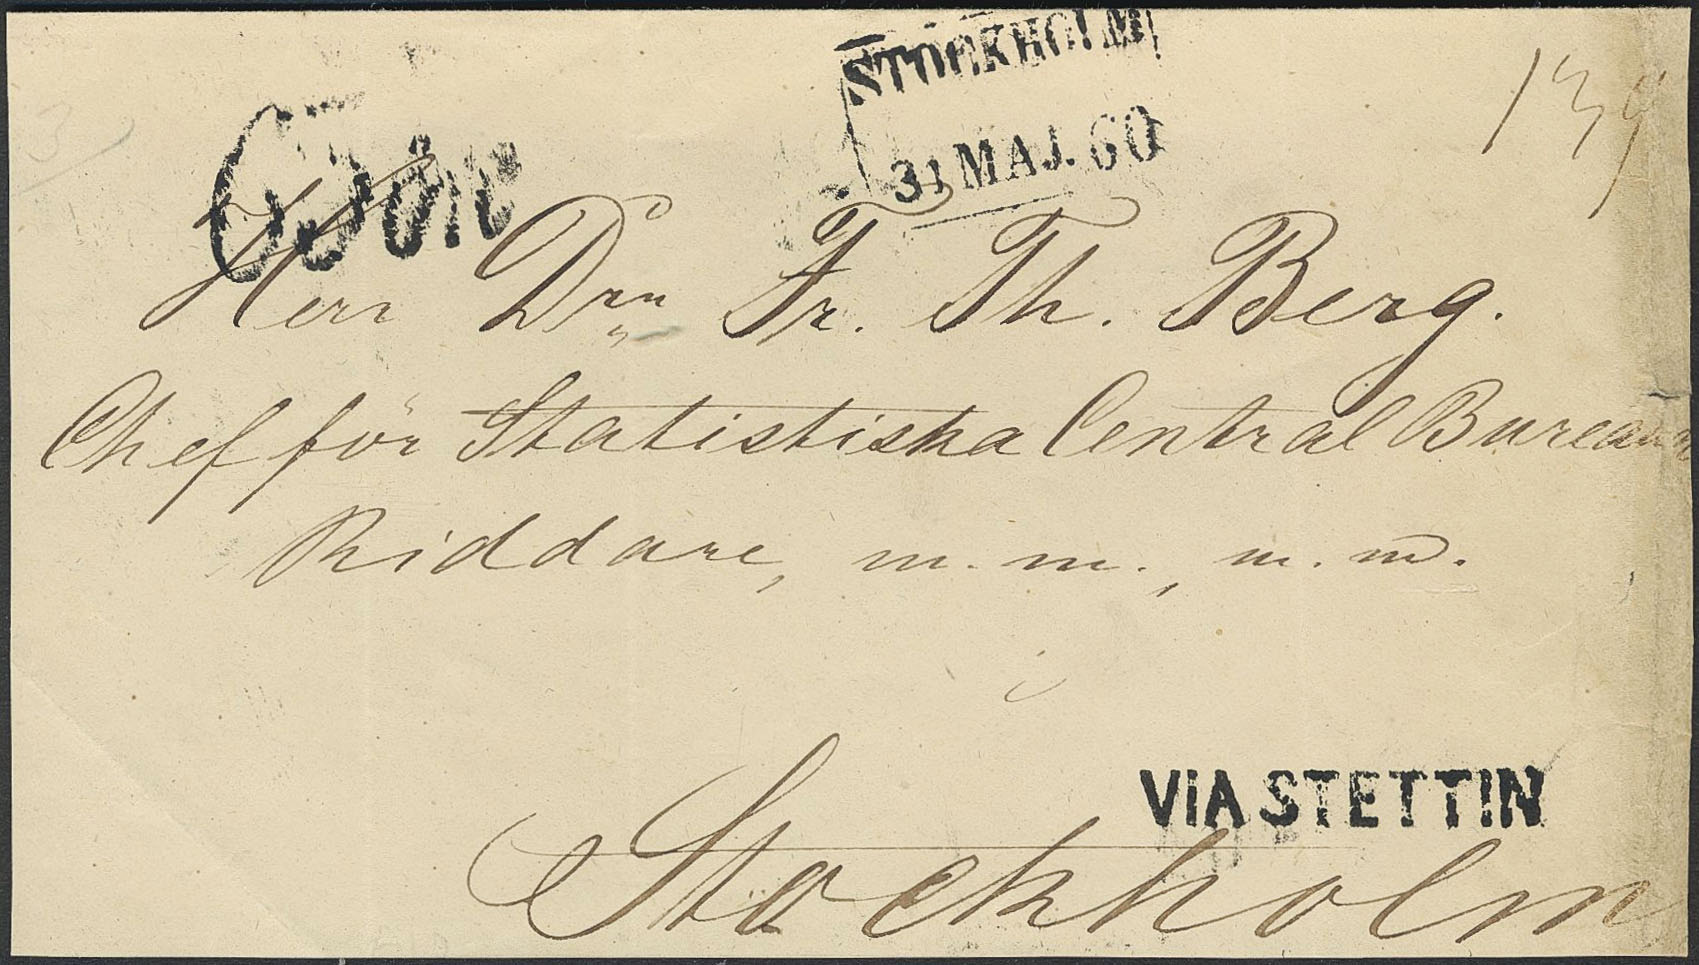 STOCKHOLM
31 MAJ. 60
139
Herr Drn Fr. Th. Berg.
Chef för Statistiska Central Bureaun
Riddare, m. m., m. m.
VIA STETTIN
Stockholm